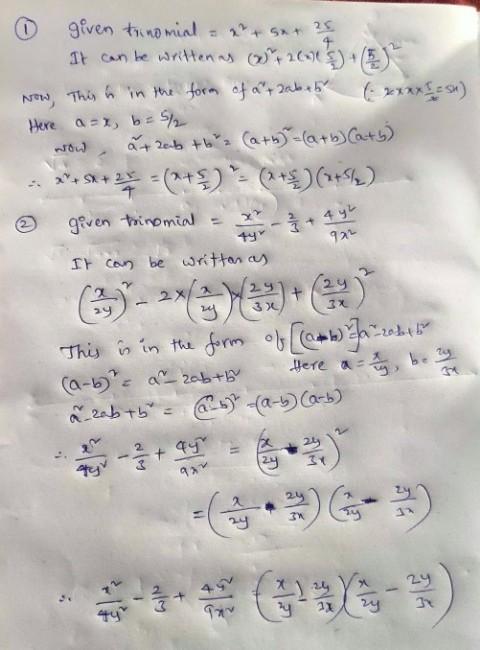 ① given trinomial = x² + 5x + 25/4
It can be written as (x)² + 2(x)(5/2) + (5/2)²
Now, This is in the form of a² + 2ab + b² (∵ 2×x×5/2 = 5x)
Here a = x, b = 5/2
now, a² + 2ab + b² = (a+b)² = (a+b)(a+b)
∴ x² + 5x + 25/4 = (x + 5/2)² = (x + 5/2)(x + 5/2)
② given trinomial = x²/4y² - 2/3 + 4y²/9x²
It can be written as
(x/2y)² - 2×(x/2y)×(2y/3x) + (2y/3x)²
This is in the form of [(a-b)² = a² - 2ab + b²]
Here a = x/2y, b = 2y/3x
(a-b)² = a² - 2ab + b²
a² - 2ab + b² = (a-b)² = (a-b)(a-b)
∴ x²/4y² - 2/3 + 4y²/9x² = (x/2y - 2y/3x)²
= (x/2y - 2y/3x)(x/2y - 2y/3x)
∴ x²/4y² - 2/3 + 4y²/9x² = (x/2y - 2y/3x)(x/2y - 2y/3x)